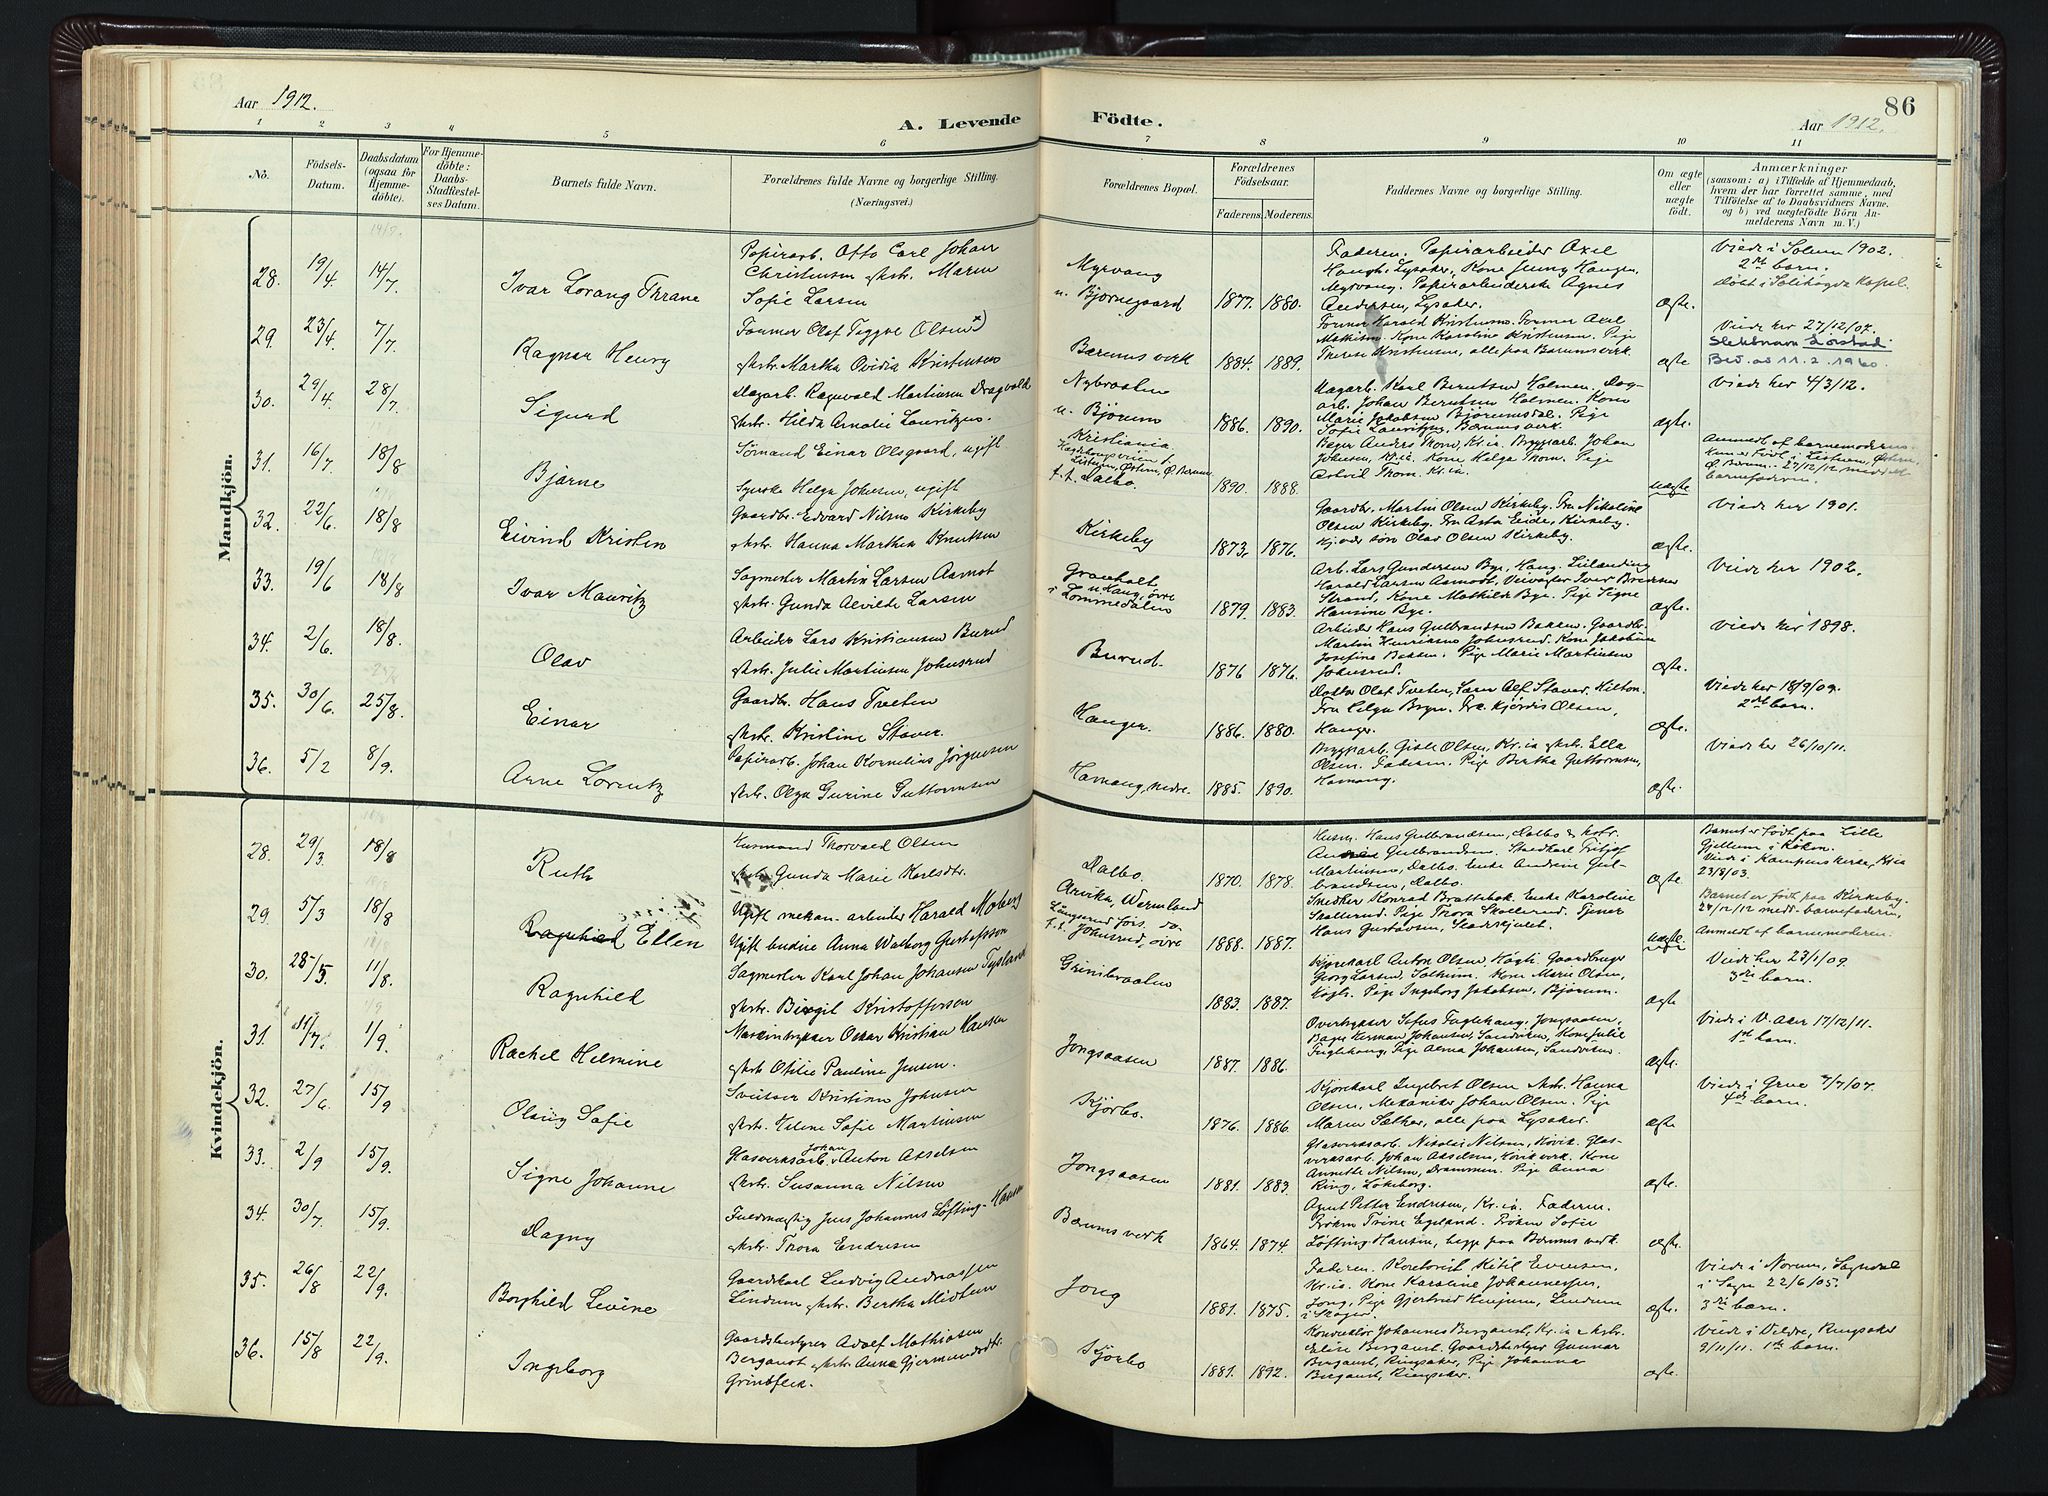 Aar 1912.
A. Levende Födte.
86
Aar 1912.
1 2 3 4 5 6 7 8 9 10 11
No.
Födsels-
Datum.
Daabsdatum
(ogsaa for
Hjemme-
döbte).
For Hjemme-
döbte:
Daabs-
Stadfæstel-
ses Datum.
Barnets fulde Navn.
Forældrenes fulde Navne og borgerlige Stilling.
(Næringsvei.)
Forældrenes Bopæl.
Forældrenes
Födselsaar.
Faderens. Moderens.
Faddernes Navne og borgerlige Stilling.
Om ægte
eller
uægte
födt.
Anmærkninger
(saasom: a) i Tilfælde af Hjemmedaab,
hvem der har forrettet samme, med
Tilföielse af to Daabsvidners Navne.
og b) ved uægtefödte Börn An-
melderens Navn m. V.)
Mandkjön.
28. 19/4 14/7. Ivar Lorang Thrane
Papirarb. Otto Carl Johan
Christensen & Hstr. Maren
Sofie Larsen
Myrvang
u. Bjørnegaard
1877. 1880.
Faderen. Papirarbeider Axel
Haugh, Lysaker, Kone Jenny Haugen,
Myrvang. Papirarbeiderske Agnes
Andersen, Lysaker.
ægte.
Viede i Solum 1902.
2det barn.
Döbt i Solihögda Kapel.
29. 23/4. 7/7. Ragnar Henry
Former Olaf Tryggve Olsen x)
& Hstr. Martha Ovidia Kristensen
Bærums verk
1884. 1889.
Former Harald Kristensen. Former Axel
Mathisen. Kone Karoline Kristensen. Pige
Therese Kristensen, alle paa Bærumsverk.
ægte
Viede her 27/12/07.
Slektsnavn Lörstad
Bev. av 11.2.1960.
30. 29/4. 28/7. Sigurd
Dagarb. Ragnvald Martinsen Dragvold
& Hstr. Hilda Amalie Lauritzen.
Nybraaten
u. Bjørum
1886. 1890.
Dagarb. Karl Berntsen Holmen. Dag-
arb. Johan Berntsen Holmen. Kone
Marie Jakobsen Bjørumsdal. Pige
Sofie Lauritzen, Bærumsverk.
ægte.
Viede her 4/3/12.
31. 16/7. 18/8 Bjarne
Sömand Einar Olsgaard, ugift
Syerske Helga Johnsen, ugift
Kristiania
t. t. Dalbo.
1890. 1888.
Bager Anders Thom, Kr.ia. Byggarb. Johan
Johnsen, Kr.ia. Kone Helga Thom. Pige
Astrid Thom. Kr.ia.
uægte
Anmeldt af barnemoderen.
32. 22/6. 18/8 Eivind Kristen
Gaardbr. Edvard Nilsen Kirkeby
& Hstr. Hanna Marthea Knutsen
Kirkeby
1873. 1876.
Gaardbr. Martin Olsen Kirkeby. Fru Nikoline
Olsen Kirkeby. Fru Asta Eide, Kirkeby.
Olav Olsen Kirkeby.
ægte.
Viede her 1901.
33. 19/6 18/8 Ivar Mauritz
Sagmester Martin Larsen Aamot
& Hstr. Gunda Alvilde Larsen
Granholt
u. Haug, övre
i Lommedalen
1879 1883.
Arb. Lars Gundersen Bye, Haug.
Harald Larsen Aamodt, Veivogter Iver Brenner
Strand, Kone Mathilde Bye. Pige Signe
Hansine Bye.
ægte.
Viede her 1902.
34. 2/6 18/8. Olav
Arbeider Lars Kristiansen Burud
& Hstr. Julie Martinsen Johnsrud
Burud.
1876 1876.
Arbeider Hans Gulbrandsen Bakken. Gaardbr.
Martin Henriksen Johnsrud. Kone Jakobine
Josefine Bakken. Pige Marie Martinsen
Johnsrud.
ægte.
Viede her 1898.
35. 30/6. 25/8. Einar
Gaardbr. Hans Tveten
& Hstr. Kristine Staver.
Hanger.
1886. 1880.
Doktor Olaf Tveten, Lærer Alf Staver, Hilton.
Fru Helga Bryn. Frk. Hjördis Olsen,
Hanger.
ægte.
Viede her 18/9/09.
2det barn.
36. 5/2 8/9. Arne Lorentz
Papirarb. Johan Kornelius Jörgensen
& Hstr. Olga Gurine Guttormsen
Hamang, nedre.
1885. 1890.
Byggarb. Gisle Olsen, Kr.ia & Hstr. Ella
Olsen. Faderen. Pige Bertha Guttormsen,
Hamang.
ægte.
Viede her 26/10/11.
Kvindekjön.
28. 29/3. 18/8 Ruth
Husmand Thorvald Olsen
& Hstr. Gunda Marie Karlsdtr.
Dalbo.
1870. 1878.
Husm. Hans Gulbrandsen, Dalbo & Hstr.
Gulbrandsen. Staldkarl Fritjof
Martinsen, Dalbo. Enke Andrine Gul-
brandsen, Dalbo.
ægte.
Barnet er födt paa Lille
Gjellum i Röken.
Viede i Kampens kirke, Kr.ia
23/8/03.
29. 5/3 18/8 Ragnhild Ellen
Ugift mekan. arbeider Harald Moberg
Ugift budeie Anna Walborg Gustafsson
Arvika, Wermland
t. t. Johnsrud, övre
1888. 1887.
Smedker Konrad Brattebok. Enke Karoline
Skollerud. Pige Thora Skollerud. Tjener
Hans Gustavsen, Stadskjulet.
uægte.
Barnet er födt paa Kirkeby.
27/12/12 medd. barnefaderen,
Anmeldt af barnemoderen.
30. 28/5. 11/8. Ragnhild
Sagmester Karl Johan Johansen Tysland
& Hstr. Birgit Kristoffersen
Grinibraaten
1883. 1887.
Kjörekarl Anton Olsen, Högli. Gaardbruger
Georg Larsen, Solheim. Kone Marie Olsen,
Högli. Pige Ingeborg Jakobsen, Bjørum.
ægte
Viede her 23/1/09.
3die barn.
31. 11/7. 1/9. Rachel Helmine
Maskintrykker Oskar Kristian Hansen
& Hstr Otilie Pauline Jensen.
Jongsaasen
1887. 1886.
Overtrykker Sofus Fuglehaug, Jongsaasen,
Bager Herman Johansen, Sandviken, Kone Julie
Fuglehaug. Pige Alma Johansen, Sandviken.
ægte.
Viede i V. Aker 17/12/11.
1ste barn.
32. 27/6. 15/9 Olaug Sofie
Sveitser Kristian Johnsen
& Hstr. Helene Sofie Martinsen
Kjørbo.
1876. 1886.
Kjørekarl Ingebret Olsen & Hstr. Hanna
Olsen, Mekaniker Johan Olsen. Pige
Maren Sæther, alle paa Lysaker.
ægte
Viede i Grue 7/7/07.
4de barn.
33. 2/9 15/9. Signe Johanne
Glasverksarb. Johan Anton Akselsen
& Hstr. Susanna Nilsen
Jongsaasen
1881. 1883.
Glasverksarb. Nikolai Nilsen, Hövik. Glas-
verksarb. Johan Akselsen, Hövik verk. Kone
Annette Nilsen, Drammen. Pige Anna
Ring, Lökeberg.
ægte.
34. 30/7. 15/9. Dagny
Fuldmægtig Jens Johannes Löfting-Hansen
& Hstr. Thora Endresen
Bærums verk
1864. 1874.
Agent Petter Endresen, Kr.ia. Faderen.
Fröken Trine Egeland. Fröken Sofie
Løfting-Hansen, begge paa Bærums verk.
ægte.
35. 26/8 22/9. Borghild Levine
Gaardskarl Ludvig Andreassen
Lindum & Hstr. Bertha Midtun
Jong
1881. 1875.
Faderen. Kittil Evensen,
Kr.ia. Kone Karoline Johannessen,
Jong, Pige Gjertrud Henjum, Lindum
i Skoger.
ægte.
Viede i Norum, Sogndal
i Sogn 22/6/05.
3die barn.
36. 15/8 22/9. Ingeborg
Gaardsbestyrer Adolf Mathiasen
Bergaust & Hstr. Anna Gjermundsdtr.
Grindflek.
Kjørbo
1881. 1892.
Konduktör Johannes Bergaust, Kr.ia & Hstr.
Elise Bergaust. Gaardsbestyrer Gunnar
Bergaust, Ringsaker, Pige Johanna
Bergaust, Ringsaker.
ægte.
Viede i Veldre, Ringsaker
9/11/11. 1ste barn.